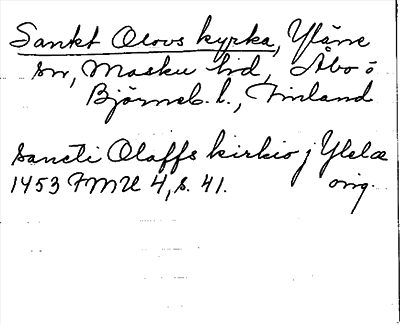 Sankt Olovs kyrka, Yläne
sn, Masku hd, Åbo o
Björneb. l., Finland
Sancti Olaffs kirkio j Ylelæ
1453 FMU 4, s. 41. orig.